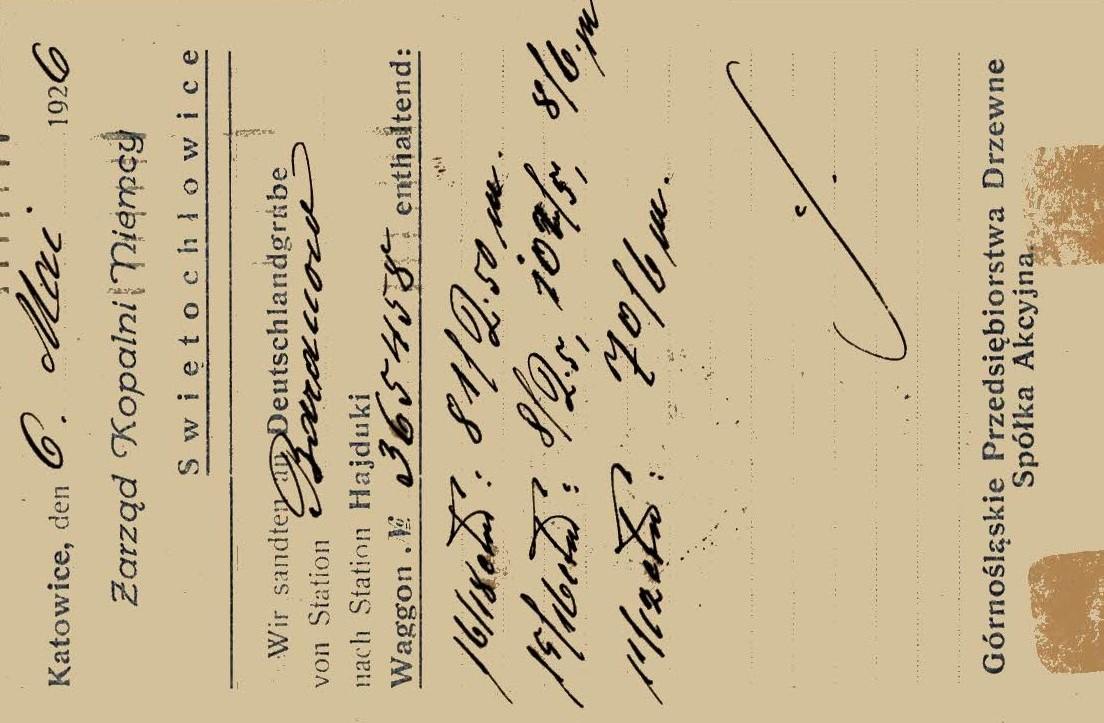 Katowice, den 6. Mai. 1926
Zarząd Kopalni Niemcy
Swietochłowice
Wir sandten an Deutschlandgrube
von Station
nach Station Hajduki
Waggon № 365458 enthaltend:
16/18 : 81/2.50 m.
15/16 : 8/2.5, 8/6. m
11/12 : 70/6 m.
Górnośląskie Przedsiębiorstwa Drzewne
Spółka Akcyjna.